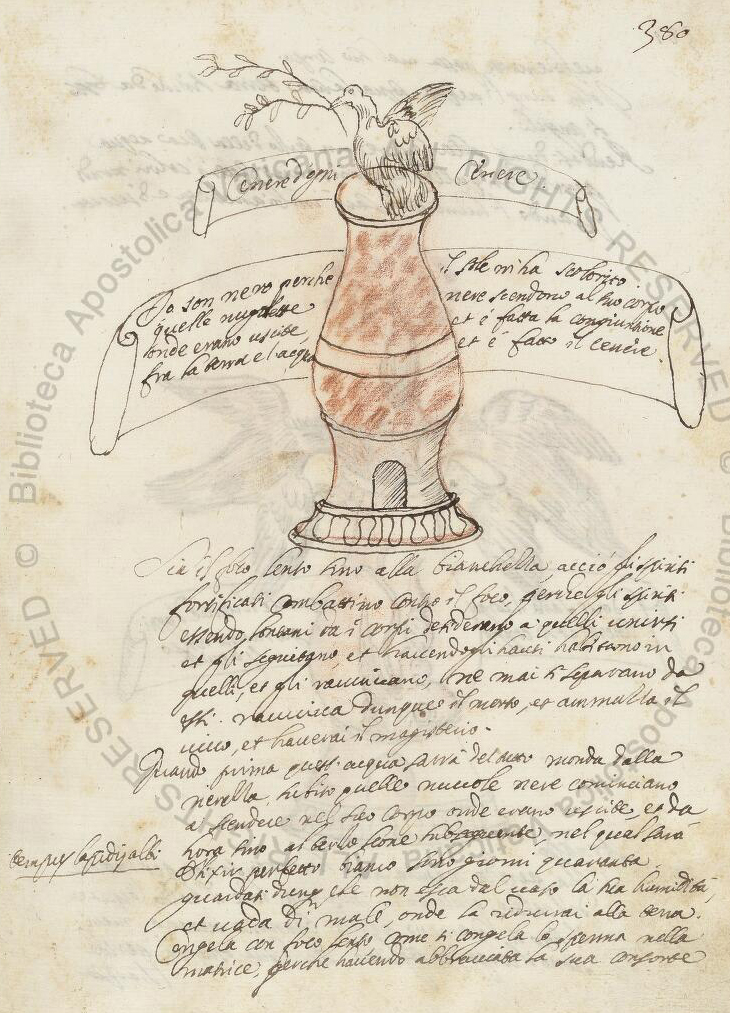 380
Cenere d'ogni Cenere.
Io son nero perche il sole m'ha scolorito
quelle nugolette nere scendono al suo corpo
onde erano uscite, et è fatta la congiunzione
fra la terra el acqua et è fatto il cenere.
Sia il foco lento sino alla bianchezza, acciò gli spiriti
fortificati combattino contro il foco, perche gli spiriti
essendo lontani da i corpi desiderano a quelli unirsi
et gli seguitano, et havendogli hauti habitano in
quelli, et gli vivificano, ne mai si separano da
essi. vivifica dunque il morto, et ammalla il
vivo, et haverai il magisterio.
Quando prima quest'acqua sarrà del tutto monda dalla
nerezza, subito quelle nuvole nere cominciano
a scendere nel suo corpo onde erano uscite, et da
hora sino al subsequente, nel qual sarà
elixir perfetto bianco sono giorni quaranta.
tempus lapidis albi
guardati dunq che non esca dal vaso la sua humidità,
et vada di male, onde la ridurrai alla terra.
Congela con foco lento come si congela lo sperma nella
matrice, perche havendo abbracciata la sua consorte
© Biblioteca Apostolica Vaticana ALL RIGHTS RESERVED